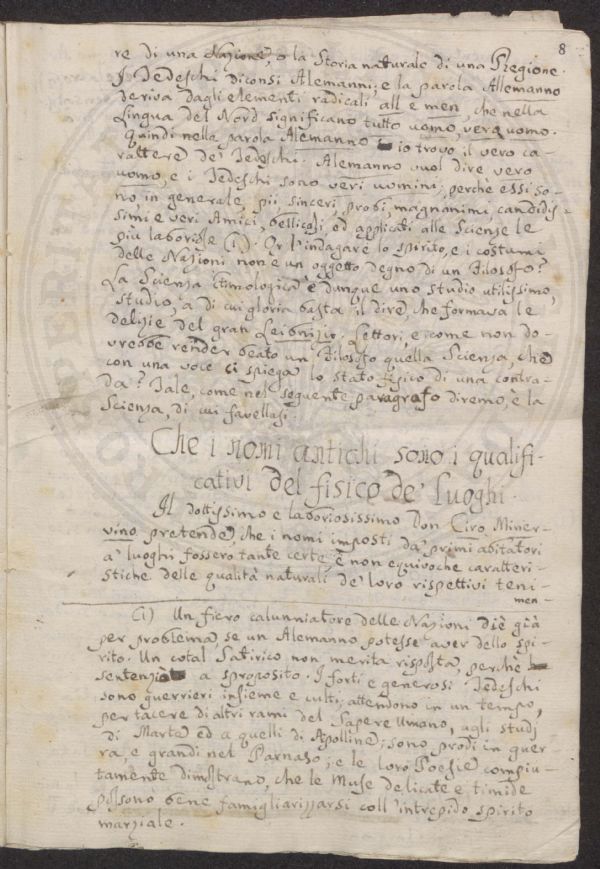 8
re di una Nazione, o la Storia naturale di una Regione.
I Tedeschi diconsi Alemanni; e la parola Allemanno
deriva dagli elementi radicali all e men, che nella
Lingua del Nord significano tutto uomo, vero uomo.
Quindi nella parola Alemanno io trovo il vero ca-
rattere de' Tedeschi. Alemanno vuol dire vero
uomo, e i Tedeschi sono veri uomini; perchè essi so-
no, in generale, pii, sinceri, probi, magnanimi, candidis-
simi e veri Amici, bellicosi, ed applicati alle Scienze le
più laboriose (1). Or l'indagare lo spirito, e i costumi
delle Nazioni non è un oggetto degno di un Filosofo?
La Scienza etimologica è dunque uno studio utilissimo,
studio, a di cui gloria basta il dire, che formava le
delizie del gran Leibnizio. Lettori, e come non do-
vrebbe render beato un Filosofo quella Scienza, che
con una voce ci spiega lo stato fisico di una contra-
da? Tale, come nel seguente paragrafo diremo, è la
Scienza, di cui favellasi.
Che i nomi antichi sono i qualifi-
cativi del fisico de' Luoghi.
Il dottissimo e laboriosissimo Don Ciro Miner-
vino pretende, che i nomi imposti da' primi abitatori
a' luoghi fossero tante certe, e non equivoche caratteri-
stiche delle qualità naturali de' loro rispettivi teni-
men-
(1) Un fiero calunniatore delle Nazioni diè già
per problema, se un Alemanno potesse aver dello spi-
rito. Un cotal Satirico non merita risposta, perchè
sentenziò a sproposito. I forti e generosi Tedeschi
sono guerrieri insieme e culti; attendono in un tempo,
per tacere di altri rami del Sapere Umano, agli studj
di Marte ed a quelli di Apolline; sono prodi in guer
ra, e grandi nel Parnaso; e le loro Poesie compiu-
tamente dimostrano, che le Muse delicate e timide
possono bene famigliarizzarsi coll'intrepido spirito
marziale.